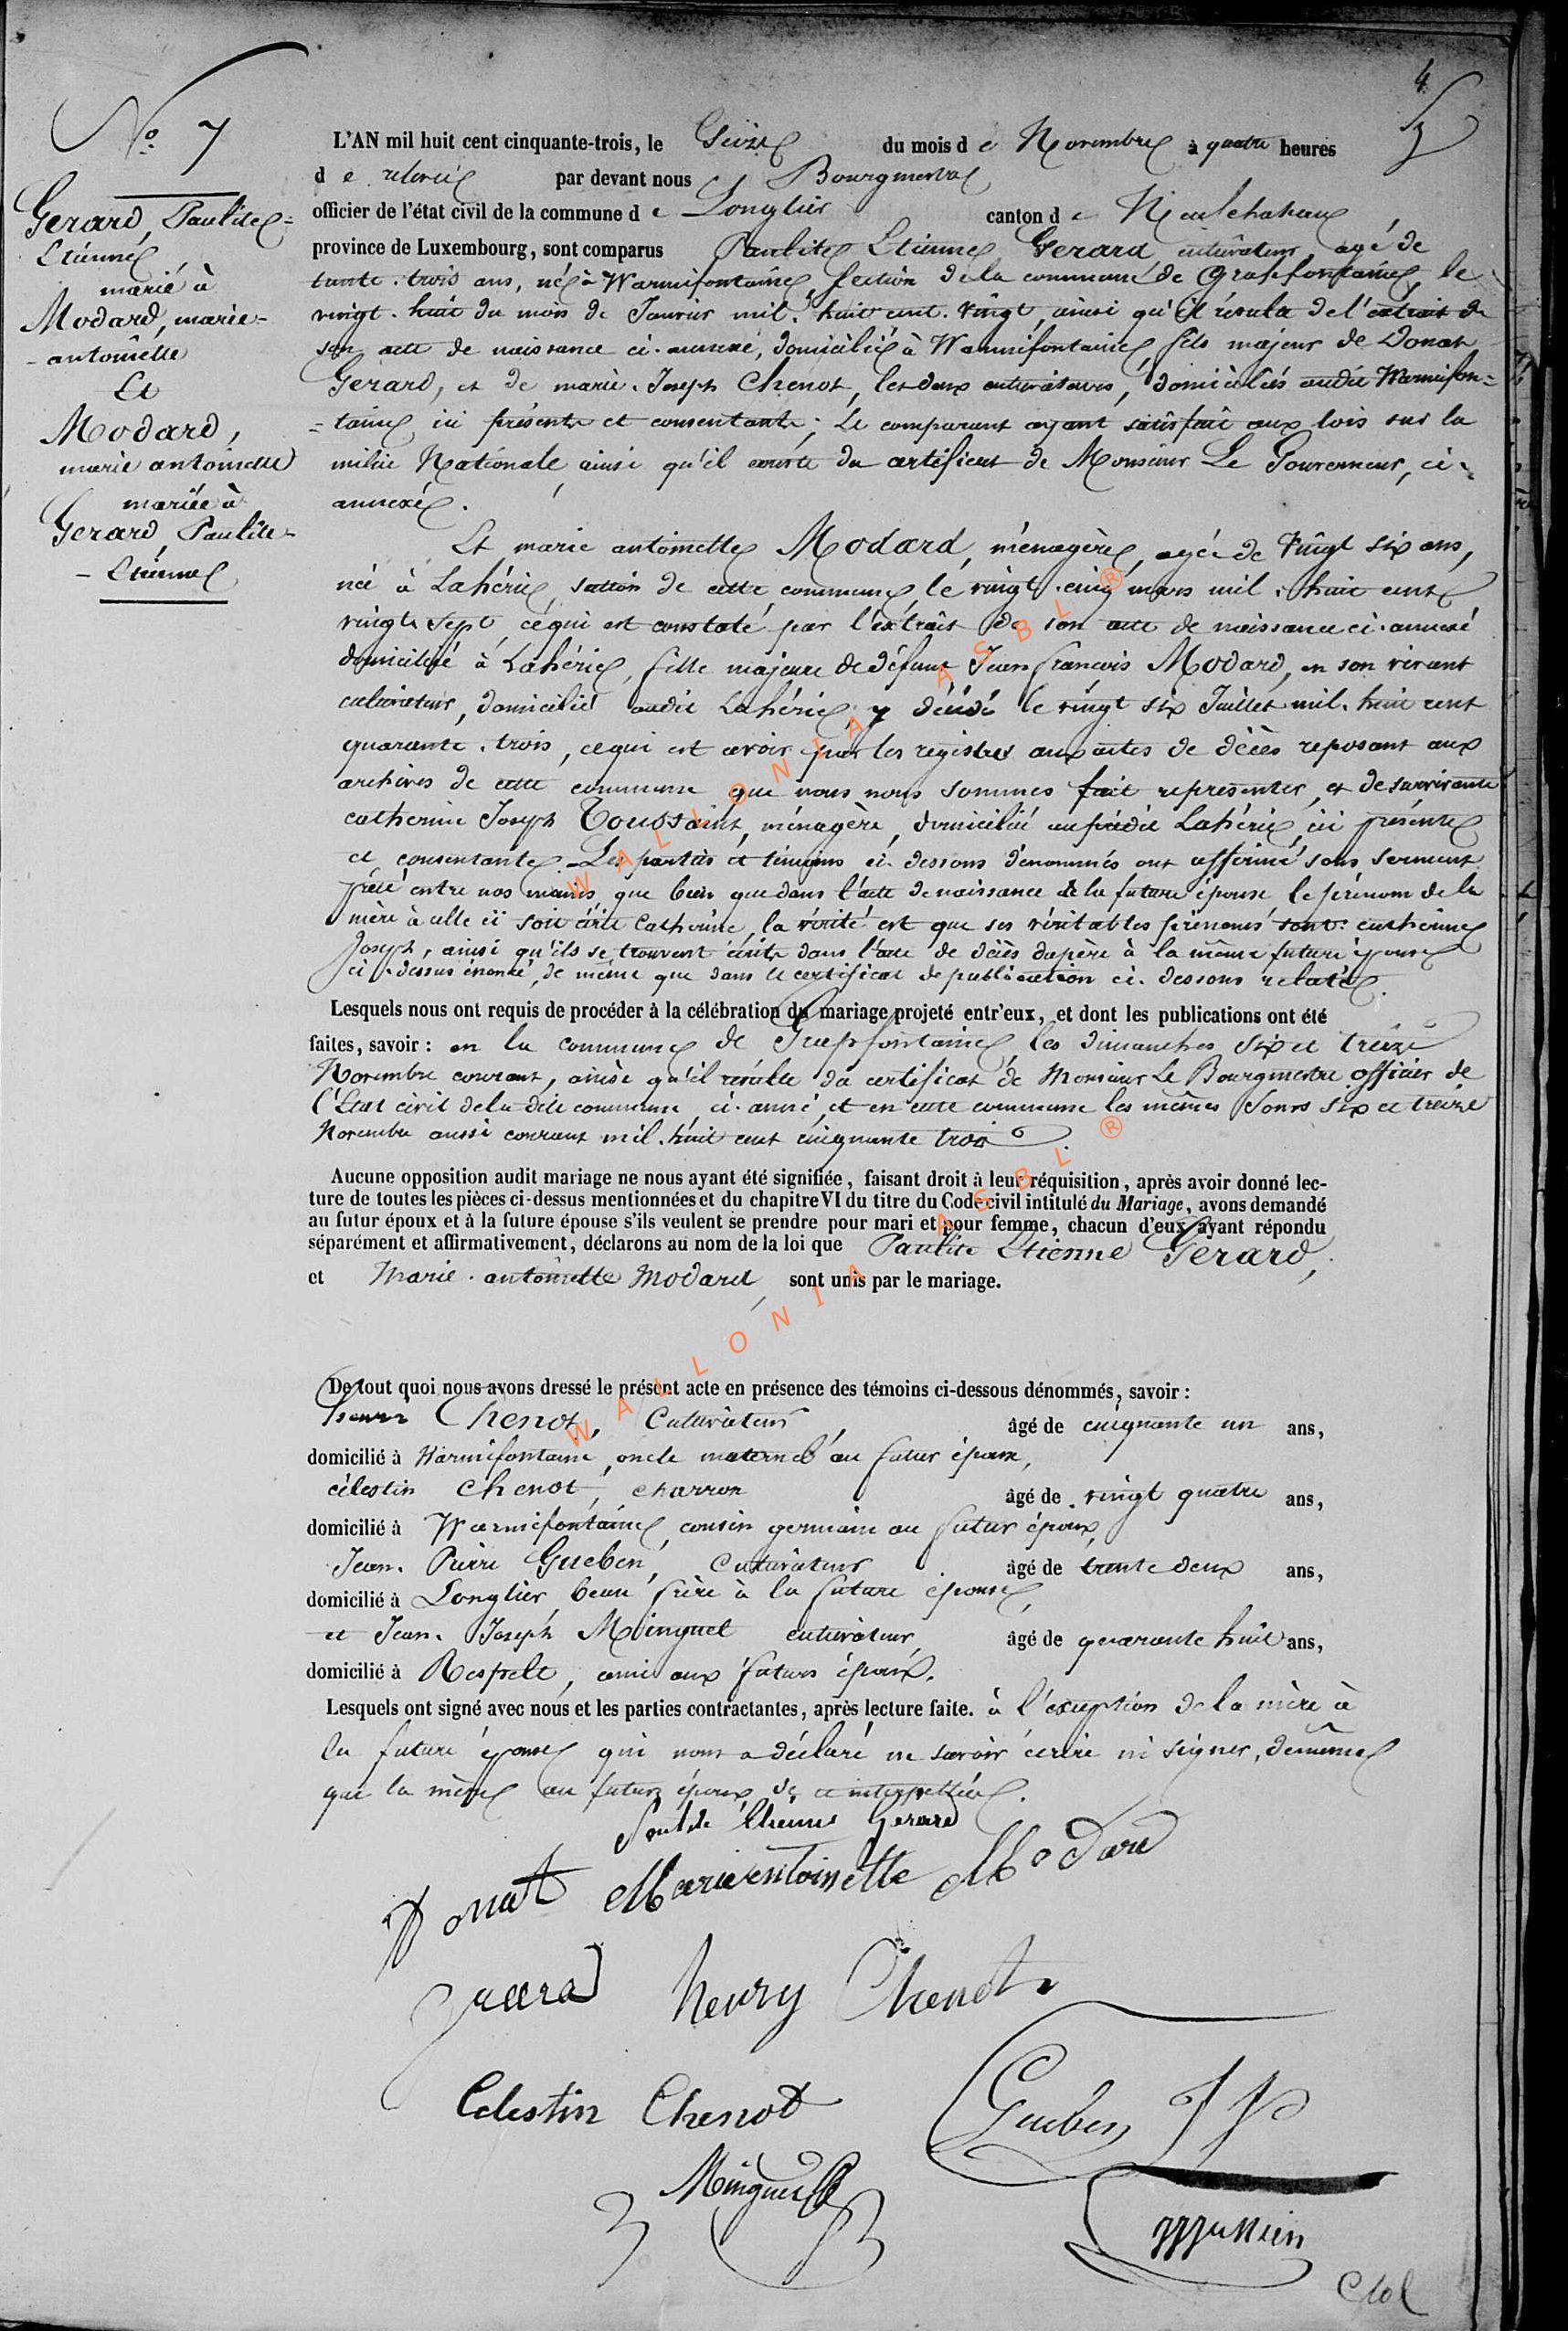 4
5
N° 7
Gerard, Paulite=
Etienne
marié à
Modard, marie-
-antoinette
Et
Modard,
marie antoinette
mariée à
Gerard, Paulite-
-Etienne
L'AN mil huit cent cinquante-trois, le Seize du mois de Novembre à quatre heures
de relevée par devant nous Bourgmestre
officier de l'état civil de la commune de Longlier canton de Neufchateau,
province de Luxembourg, sont comparus Paulite Etienne Gerard, cultivateur, agé de
trente-trois ans, né à Warmifontaine, section de la commune de Grapfontaine, le
vingt-huit du mois de Janvier mil-huit cent-vingt, ainsi qu'il résulte de l'extrait de
son acte de naissance ci-annexé, domicilié à Warmifontaine, fils majeur de Donat
Gérard, et de marie-Joseph Chenot, les deux cultivateurs, domiciliés audit Warmifon=
=taine, ici présents et consentants; Le comparant ayant satisfait aux lois sur la
milice Nationale, ainsi qu'il conste du certificat de Monsieur Le Gouverneur, ci-
annexé.
Et marie antoinette Modard, ménagère, agée de vingt six ans,
née à Lahérie, section de cette commune, le vingt-cinq mars mil-huit cent
vingt-sept, ce qui est constaté par l'extrait de son acte de naissance ci-annexé
domiciliée à Lahérie, fille majeure de défunt Jean François Modard, en son vivant
cultivateur, domicilié audit Lahérie, y décédé le vingt six Juillet mil-huit cent
quarante-trois, ce qui est avoir par les registres aux actes de décès reposant aux
archives de cette commune que nous nous sommes fait représenter, et de survivante
catherine Joseph Toussaint, ménagère, domiciliée au prédit Lahérie, ici présente
et consentante. Les parties et témoins ci-dessous dénommés ont affirmé sous serment
prété entre nos mains, que bien que dans l'acte de naissance de la future épouse, le prénom de la
mère à celle ci soit écrit Catherine, la vérité est que ses véritables prénoms sont: catherine
Joseph, ainsi qu'ils se trouvent écrits dans l'acte de décès du père à la même future épouse
ci-dessus énoncé, de même que dans le certificat de publication ci-dessous relaté.
Lesquels nous ont requis de procéder à la célébration du mariage projeté entr'eux, et dont les publications ont été
faites, savoir: en la commune de Grapfontaine les dimanches six et treize
Novembre courant, ainsi qu'il résulte du certificat de Monsieur Le Bourgmestre officier de
l'Etat civil de la dite commune, ci-annexé, et en cette commune les mêmes Jours six et treize
Novembre aussi courant mil-huit cent cinquante trois.
Aucune opposition audit mariage ne nous ayant été signifiée, faisant droit à leur réquisition, après avoir donné lec-
ture de toutes les pièces ci-dessus mentionnées et du chapitre VI du titre du Code civil intitulé du Mariage, avons demandé
au futur époux et à la future épouse s'ils veulent se prendre pour mari et pour femme, chacun d'eux ayant répondu
séparément et affirmativement, déclarons au nom de la loi que Paulite Etienne Gerard,
et Marie-antoinette Modard, sont unis par le mariage.
De tout quoi nous avons dressé le présent acte en présence des témoins ci-dessous dénommés, savoir:
henri Chenot, Cultivateur, âgé de cinquante un ans,
domicilié à Warmifontaine, oncle maternel au futur époux,
célestin Chenot, charron âgé de vingt quatre ans,
domicilié à Warmifontaine, cousin germain au futur époux,
Jean-Pierre Gueben, Cultivateur âgé de trente deux ans,
domicilié à Longlier, beau frère à la future épouse,
et Jean-Joseph Minguet cultivateur, âgé de quarante huit ans,
domicilié à Respelt, ami aux futurs époux.
Lesquels ont signé avec nous et les parties contractantes, après lecture faite. à l'exception de la mère à
la future épouse qui nous a déclaré ne savoir écrire ni signer, de même
que la mère au futur époux, de ce interpellées.
Paulite Etienne Gerard
Donat Marie antoinette Modard
gerard henry Chenot
Celestin Chenot Gueben JP
Minguet
WALLONIA ASBL ®
WALLONIA ASBL ®